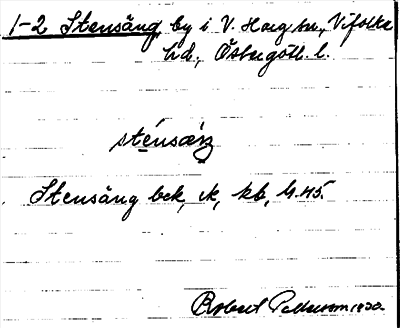 1-2 Stensäng, by i V. Harg sn, Vifolka
hd., Östergötl. l.
sténsæŋ
Stensäng bek, vk, kb, G.45.
Robert Pettersson 1930